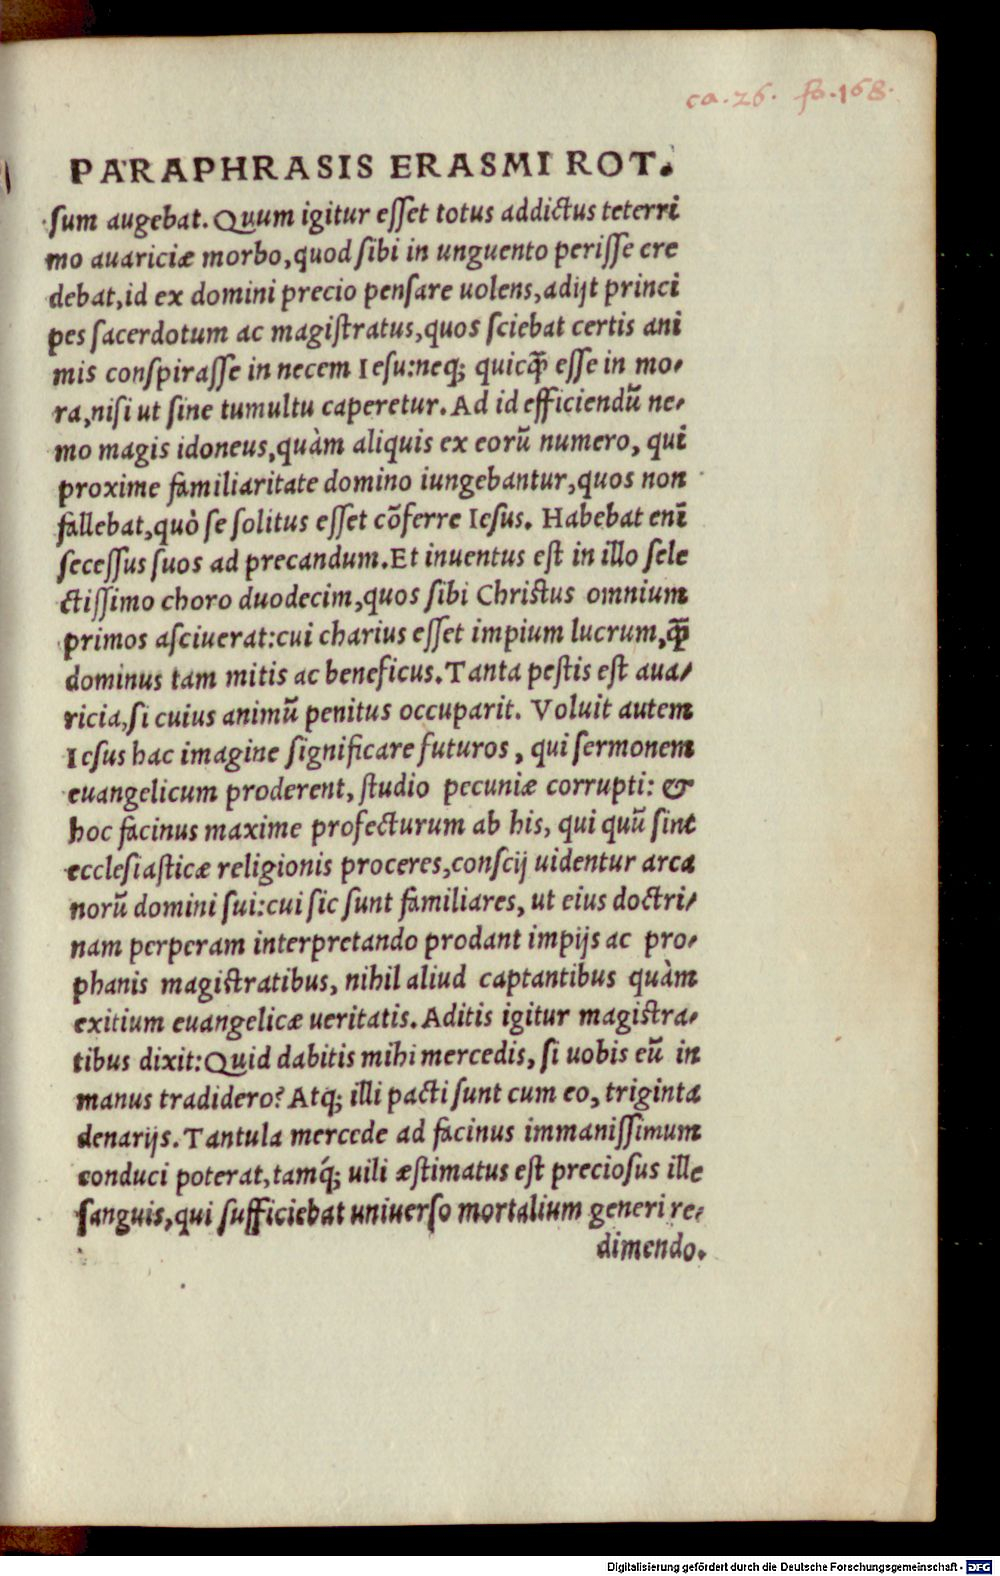 ca. 26. fo. 168.
PARAPHRASIS ERASMI ROT.
ſum augebat. Quum igitur eſſet totus addictus teterri
mo auariciæ morbo, quod ſibi in unguento periſſe cre
debat, id ex domini precio penſare uolens, adijt princi
pes ſacerdotum ac magiſtratus, quos ſciebat certis ani
mis conſpiraſſe in necem Ieſu: neq; quicq̃ eſſe in mo-
ra, niſi ut ſine tumultu caperetur. Ad id efficiendũ ne-
mo magis idoneus, quàm aliquis ex eorũ numero, qui
proxime familiaritate domino iungebantur, quos non
fallebat, quò ſe ſolitus eſſet cõferre Ieſus. Habebat enĩ
ſeceſſus ſuos ad precandum. Et inuentus eſt in illo ſele
ctiſſimo choro duodecim, quos ſibi Chriſtus omnium
primos aſciuerat: cui charius eſſet impium lucrum, q̃
dominus tam mitis ac beneficus. Tanta peſtis eſt aua-
ricia, ſi cuius animũ penitus occuparit. Voluit autem
Ieſus hac imagine ſignificare futuros, qui ſermonem
euangelicum proderent, ſtudio pecuniæ corrupti: &
hoc facinus maxime profecturum ab his, qui quũ ſint
eccleſiaſticæ religionis proceres, conſcij uidentur arca
norũ domini ſui: cui ſic ſunt familiares, ut eius doctri-
nam perperam interpretando prodant impijs ac pro-
phanis magiſtratibus, nihil aliud captantibus quàm
exitium euangelicæ ueritatis. Aditis igitur magiſtra-
tibus dixit: Quid dabitis mihi mercedis, ſi uobis eũ in
manus tradidero? Atq; illi pacti ſunt cum eo, triginta
denarijs. Tantula mercede ad facinus immaniſſimum
conduci poterat, tamq́; uili æſtimatus eſt precioſus ille
ſanguis, qui ſufficiebat uniuerſo mortalium generi re-
dimendo.
Digitalisierung gefördert durch die Deutsche Forschungsgemeinschaft - DFG